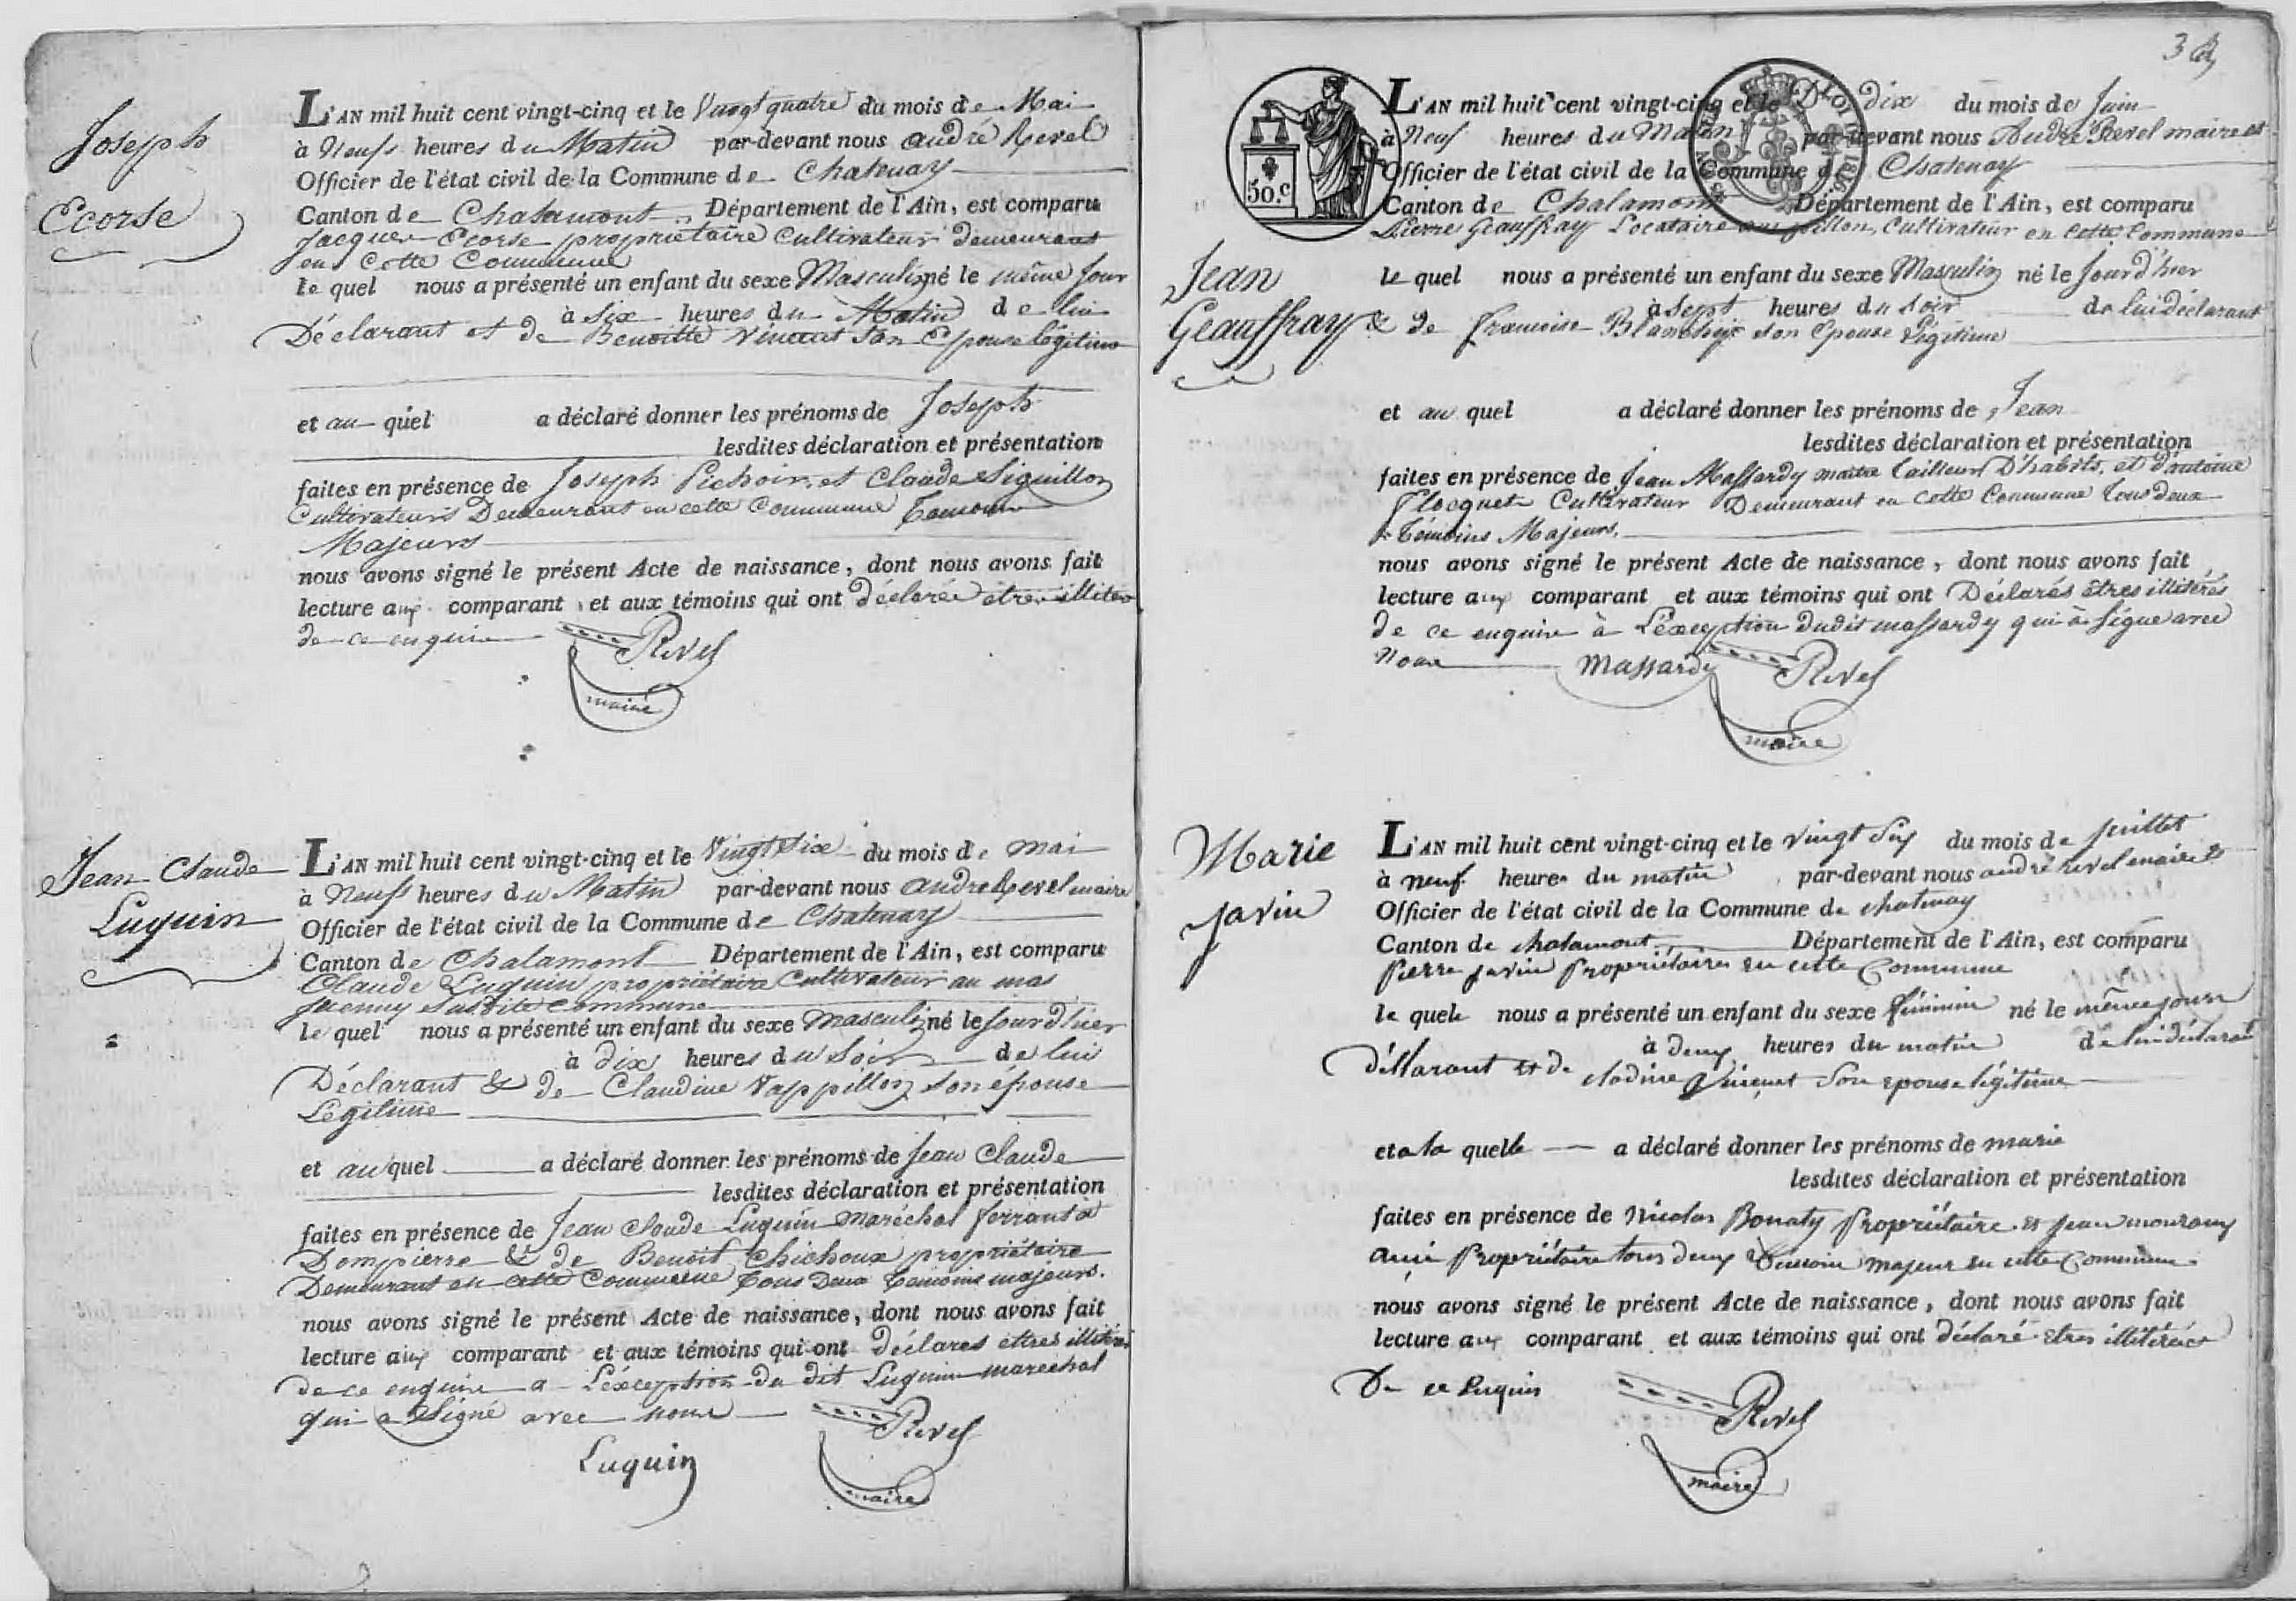 Joseph
Ecorse
L'AN mil huit cent vingt-cinq et le Vingt quatre du mois de Mai
à Neufs heures du Matin par-devant nous André Revel
Officier de l'état civil de la Commune de Chatenay
Canton de Chalamont Département de l'Ain, est comparu
Jacques Ecorse propriétaire Cultivateur demeurant
en Cette Commune
le quel nous a présenté un enfant du sexe Masculin né le même jour
à Six heures du Matin de lui
Déclarant et de Benoitte Vincent son Epouse légitime
et au quel a déclaré donner les prénoms de Joseph
lesdites déclaration et présentation
faites en présence de Joseph Pichoir et Claude Siguillon
Cultivateurs Demeurant en cette Commune Temoins
Majeurs
nous avons signé le présent Acte de naissance, dont nous avons fait
lecture aux comparant et aux témoins qui ont déclarés êtres illiteré
de ce enquire
Revel
maire
Jean Claude
Luquin
L'AN mil huit cent vingt-cinq et le Vingt Six du mois de mai
à Neufs heures du Matin par-devant nous André Revel maire
Officier de l'état civil de la Commune de Chatenay
Canton de Chalamont Département de l'Ain, est comparu
Claude Luquin propriétaire Cultivateur au mas
Jaenny Susdite Commune
le quel nous a présenté un enfant du sexe masculin né le jour d'hier
à dix heures du Soir de lui
Déclarant & de Claudine Vappillon son épouse
Légitime
et au quel a déclaré donner les prénoms de Jean Claude
lesdites déclaration et présentation
faites en présence de Jean Claude Luquin maréchal ferrant à
Dompierre & de Benoit Chichoux propriétaire
Demeurant en cette Commune Tous Deux Temoins majeurs.
nous avons signé le présent Acte de naissance, dont nous avons fait
lecture aux comparant et aux témoins qui ont déclarés êttres illitérés
de ce enquire a L'éxception du dit Luquin marechal
qui a Signé avec nous
Luquin
Revel
maire
50.c
Jean
Geauffray
L'AN mil huit cent vingt-cinq et le dix du mois de Juin
à Neuf heures du Matin par-devant nous André Revel maire et
Officier de l'état civil de la Commune de Chatenay
Canton de Chalamont Département de l'Ain, est comparu
Pierre Geauffray Locataire Cultivateur en cette Commune
le quel nous a présenté un enfant du sexe Masculin né le jour d'hier
à Sept heures du soir de lui déclarant
& de francoise Blanchijt son Epouse Légitime
et au quel a déclaré donner les prénoms de Jean
lesdites déclaration et présentation
faites en présence de Jean Massardy maitre tailleur D'habits, et d'antoine
Flocquet Cultivateur Demeurant en cette Commune tous deux
Témoins Majeurs.
nous avons signé le présent Acte de naissance, dont nous avons fait
lecture aux comparant et aux témoins qui ont Déclarés êtres illitérés
de ce enquire à L'éxception dudit massardy qui à signe avec
Nous
Massardy
Revel
maire
Marie
javin
L'AN mil huit cent vingt-cinq et le vingt Six du mois de juillet
à neuf heures du matin par-devant nous andré revel maire et
Officier de l'état civil de la Commune de chatenay
Canton de chalamont Département de l'Ain, est comparu
pierre javin propriétaire en cette Commune
le quel nous a présenté un enfant du sexe féminin né le même jour
à deux heures du matin de lui déclarant
déllarant et de clodine Vincent son epouse légitime
et a la quelle a déclaré donner les prénoms de marie
lesdites déclaration et présentation
faites en présence de Nicolas Bonaty propriétaire et jean
propriétaire tous deux temoin majeur en cette Commune
nous avons signé le présent Acte de naissance, dont nous avons fait
lecture aux comparant et aux témoins qui ont déclaré êtres illitérés
De ce Enquis
Revel
maire